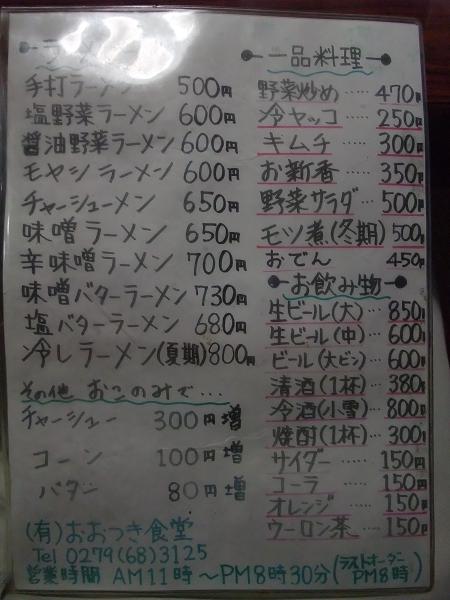 ラーメン
手打ラーメン 500円
塩野菜ラーメン 600円
醤油野菜ラーメン 600円
モヤシラーメン 600円
チャーシューメン 650円
味噌ラーメン 650円
辛味噌ラーメン 700円
味噌バターラーメン 730円
塩バターラーメン 680円
冷しラーメン(夏期) 800円
その他 おこのみで…
チャーシュー 300円増
コーン 100円増
バター 80円増
一品料理
野菜炒め…470円
冷ヤッコ…250円
キムチ…300円
お新香…350円
野菜サラダ…500円
モツ煮(冬期) 500円
おでん 450円
お飲み物
生ビール(大)…850円
生ビール(中)…600円
ビール(大ビン)…600円
清酒(1杯)…380円
冷酒(小雪)…800円
焼酎(1杯)…300円
サイダー……150円
コーラ……150円
オレンジ……150円
ウーロン茶…150円
(有)おおつき食堂
Tel 0279(68)3125
営業時間 AM11時〜PM8時30分(ラストオーダーPM8時)